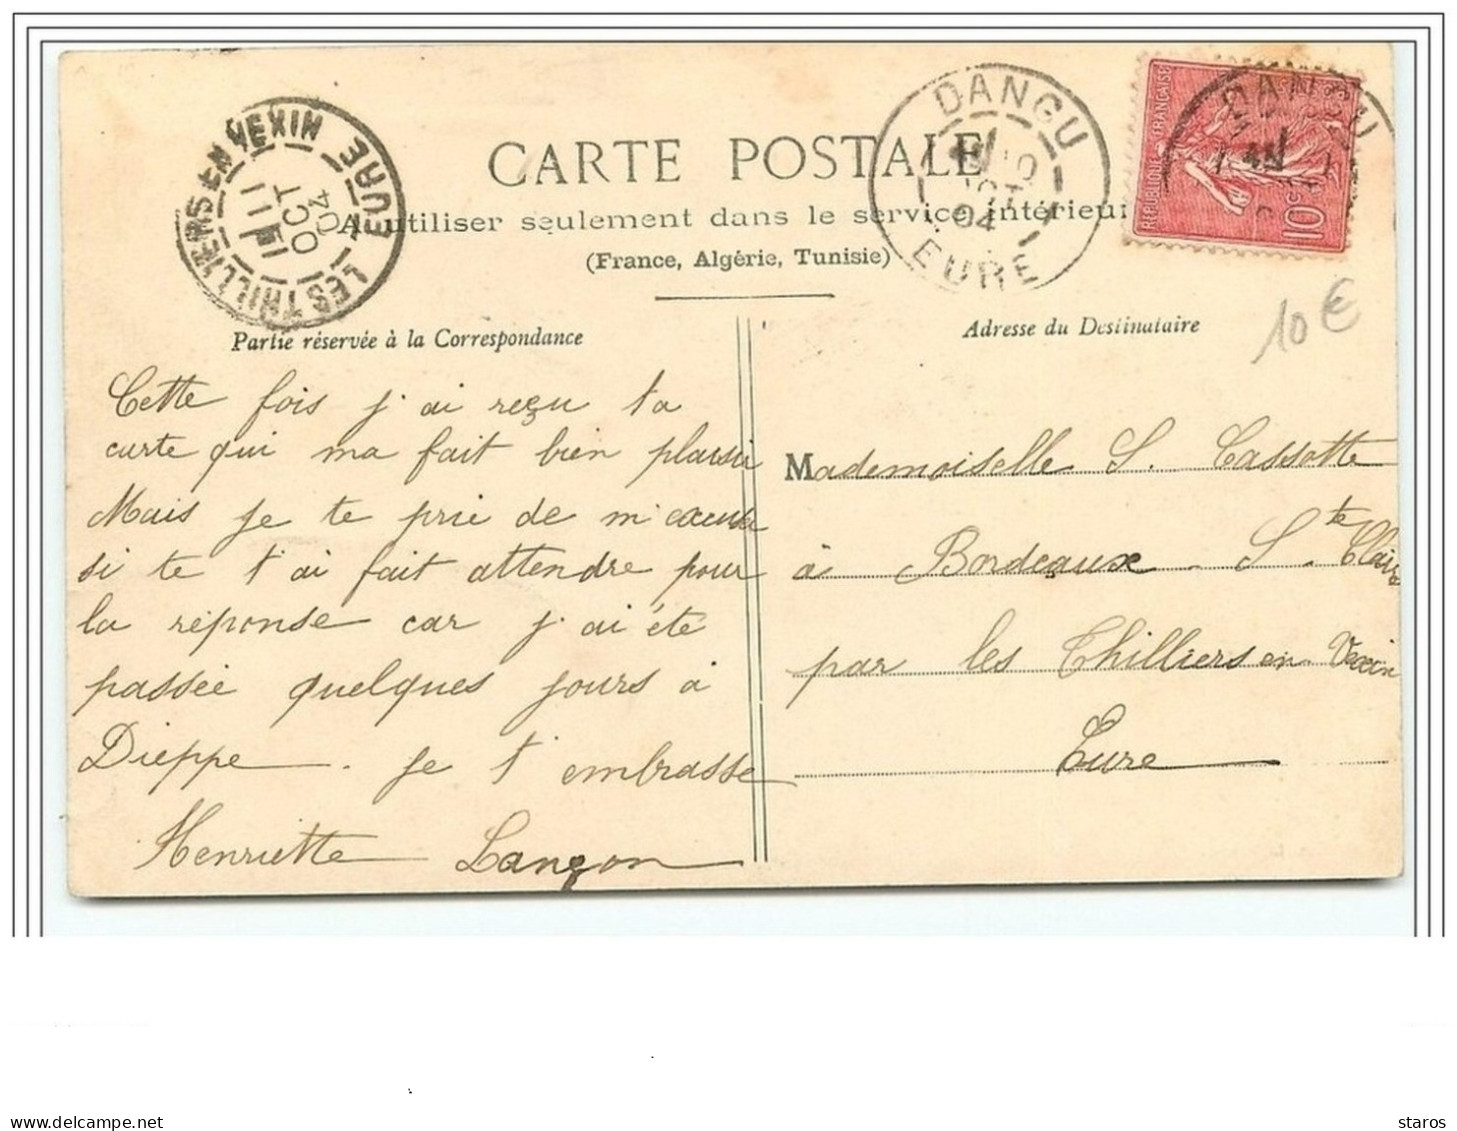 CARTE POSTALE
A utiliser seulement dans le service intérieur
(France, Algérie, Tunisie)
LES THILLIERS-EN-VEXIN
EURE
11
OCT
04
DANGU
10
OCT
04
EURE
DANGU
REPUBLIQUE FRANCAISE
10c
10 €
Partie réservée à la Correspondance
Cette fois j'ai reçu ta
carte qui ma fait bien plaisir
Mais je te prie de m'excuser
si te t'ai fait attendre pour
la réponse car j'ai été
passée quelques jours à
Dieppe. Je t'embrasse
Henriette Lançon
Adresse du Destinataire
Mademoiselle S. Cassotte
à Bordeaux - Ste Claire
par les Thilliers en Vexin
Eure
staros